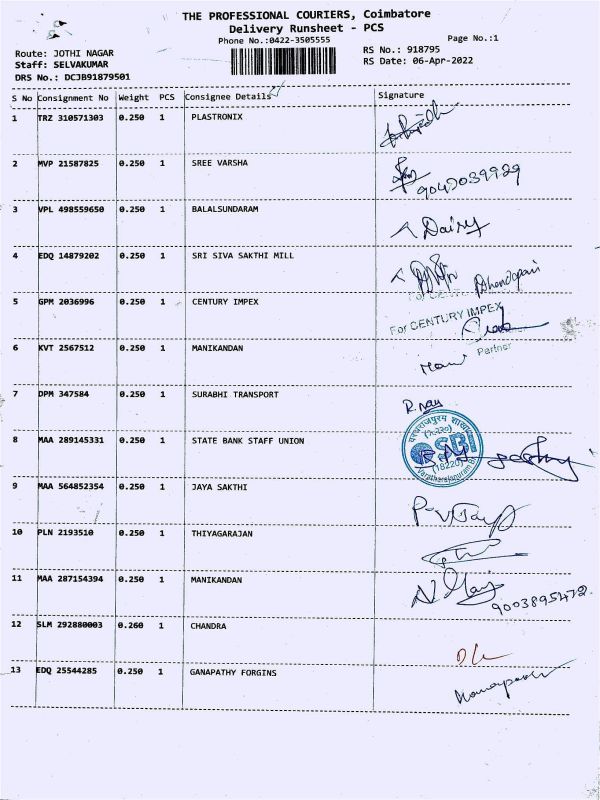 THE PROFESSIONAL COURIERS, Coimbatore
Delivery Runsheet - PCS
Phone No.:0422-3505555
Page No.:1
Route: JOTHI NAGAR
RS No.: 918795
Staff: SELVAKUMAR
RS Date: 06-Apr-2022
DRS No.: DCJB91879501
S No Consignment No Weight PCS Consignee Details Signature
1 TRZ 310571303 0.250 1 PLASTRONIX
2 MVP 21587825 0.250 1 SREE VARSHA
9047039929
3 VPL 498559650 0.250 1 BALALSUNDARAM
Dairy
4 EDQ 14879202 0.250 1 SRI SIVA SAKTHI MILL
5 GPM 2036996 0.250 1 CENTURY IMPEX
For CENTURY IMPEX
Partner
6 KVT 2567512 0.250 1 MANIKANDAN
Mani
7 DPM 347584 0.250 1 SURABHI TRANSPORT
8 MAA 289145331 0.250 1 STATE BANK STAFF UNION
SBI
(18220)
9 MAA 564852354 0.250 1 JAYA SAKTHI
10 PLN 2193510 0.250 1 THIYAGARAJAN
11 MAA 287154394 0.250 1 MANIKANDAN
9003895472
12 SLM 292880003 0.260 1 CHANDRA
13 EDQ 25544285 0.250 1 GANAPATHY FORGINS